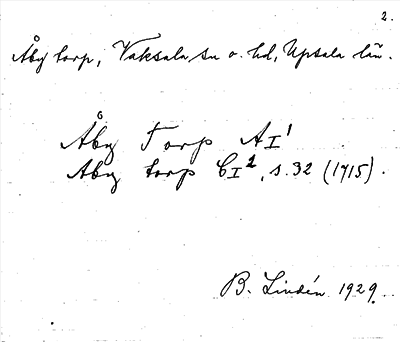 2.
Åby torp, Vaksala sn o. hd, Upsala län.
Åby Torp AI¹
Aby torp CI², s. 32 (1715).
B. Lindén 1929.